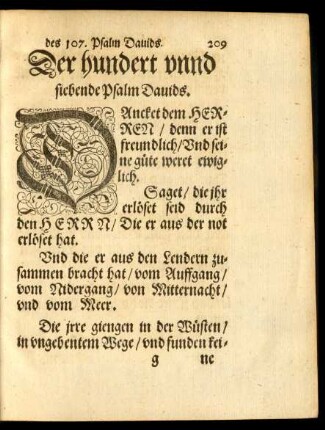 des 107. Psalm Dauids. 209
Der hundert vnnd
siebende Psalm Dauids.
DAncket dem HER-
REN / denn er ist
freundlich / Vnd sei-
ne güte weret ewig-
lich.
Saget / die jhr
erlöset seid durch
den HERRN / Die er aus der not
erlöset hat.
Vnd die er aus den Lendern zu-
sammen bracht hat / vom Auffgang /
vom Nidergang / von Mitternacht /
vnd vom Meer.
Die jrre giengen in der Wüsten /
in vngebentem Wege / vnd funden kei-
g ne